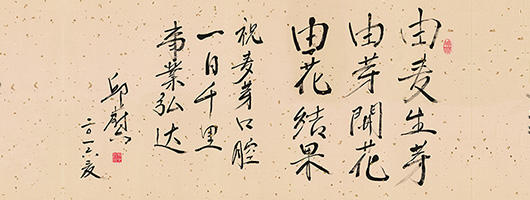 由麦生芽
由芽開花
由花结果
祝麦芽口腔
一日千里
事業弘达
邱
二〇一六夏